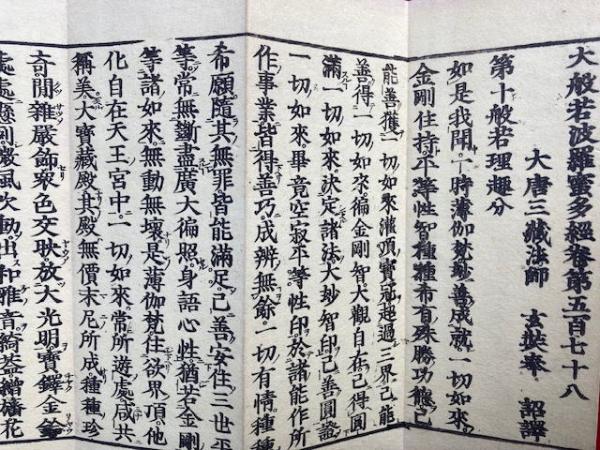 大般若波羅蜜多經卷第五百七十八
大唐三藏法師　玄奘奉　詔譯
第十般若理趣分
如是我聞一時薄伽梵妙善成就一切如來
金剛住持平等性智種種希有殊勝功德已
能善獲一切如來灌頂寶冠超過三界已能
善得一切如來徧金剛智大觀自在已得圓
滿一切如來決定諸法大妙智印已善圓證
一切如來畢竟空寂平等性印於諸能作所
作事業皆得善巧成辨無餘一切有情種種
希願隨其無罪皆能滿足已善安住三世平
等常無斷盡廣大徧照身語心性猶若金剛
等諸如來無動無壞是薄伽梵住欲界頂他
化自在天王宮中一切如來常所遊處咸共
稱美大寶藏殿其殿無價末尼所成種種珍
奇間雜嚴飾衆色交映放大光明寶鐸金鈴
處處懸列微風吹動出和雅音綺蓋繒幡花